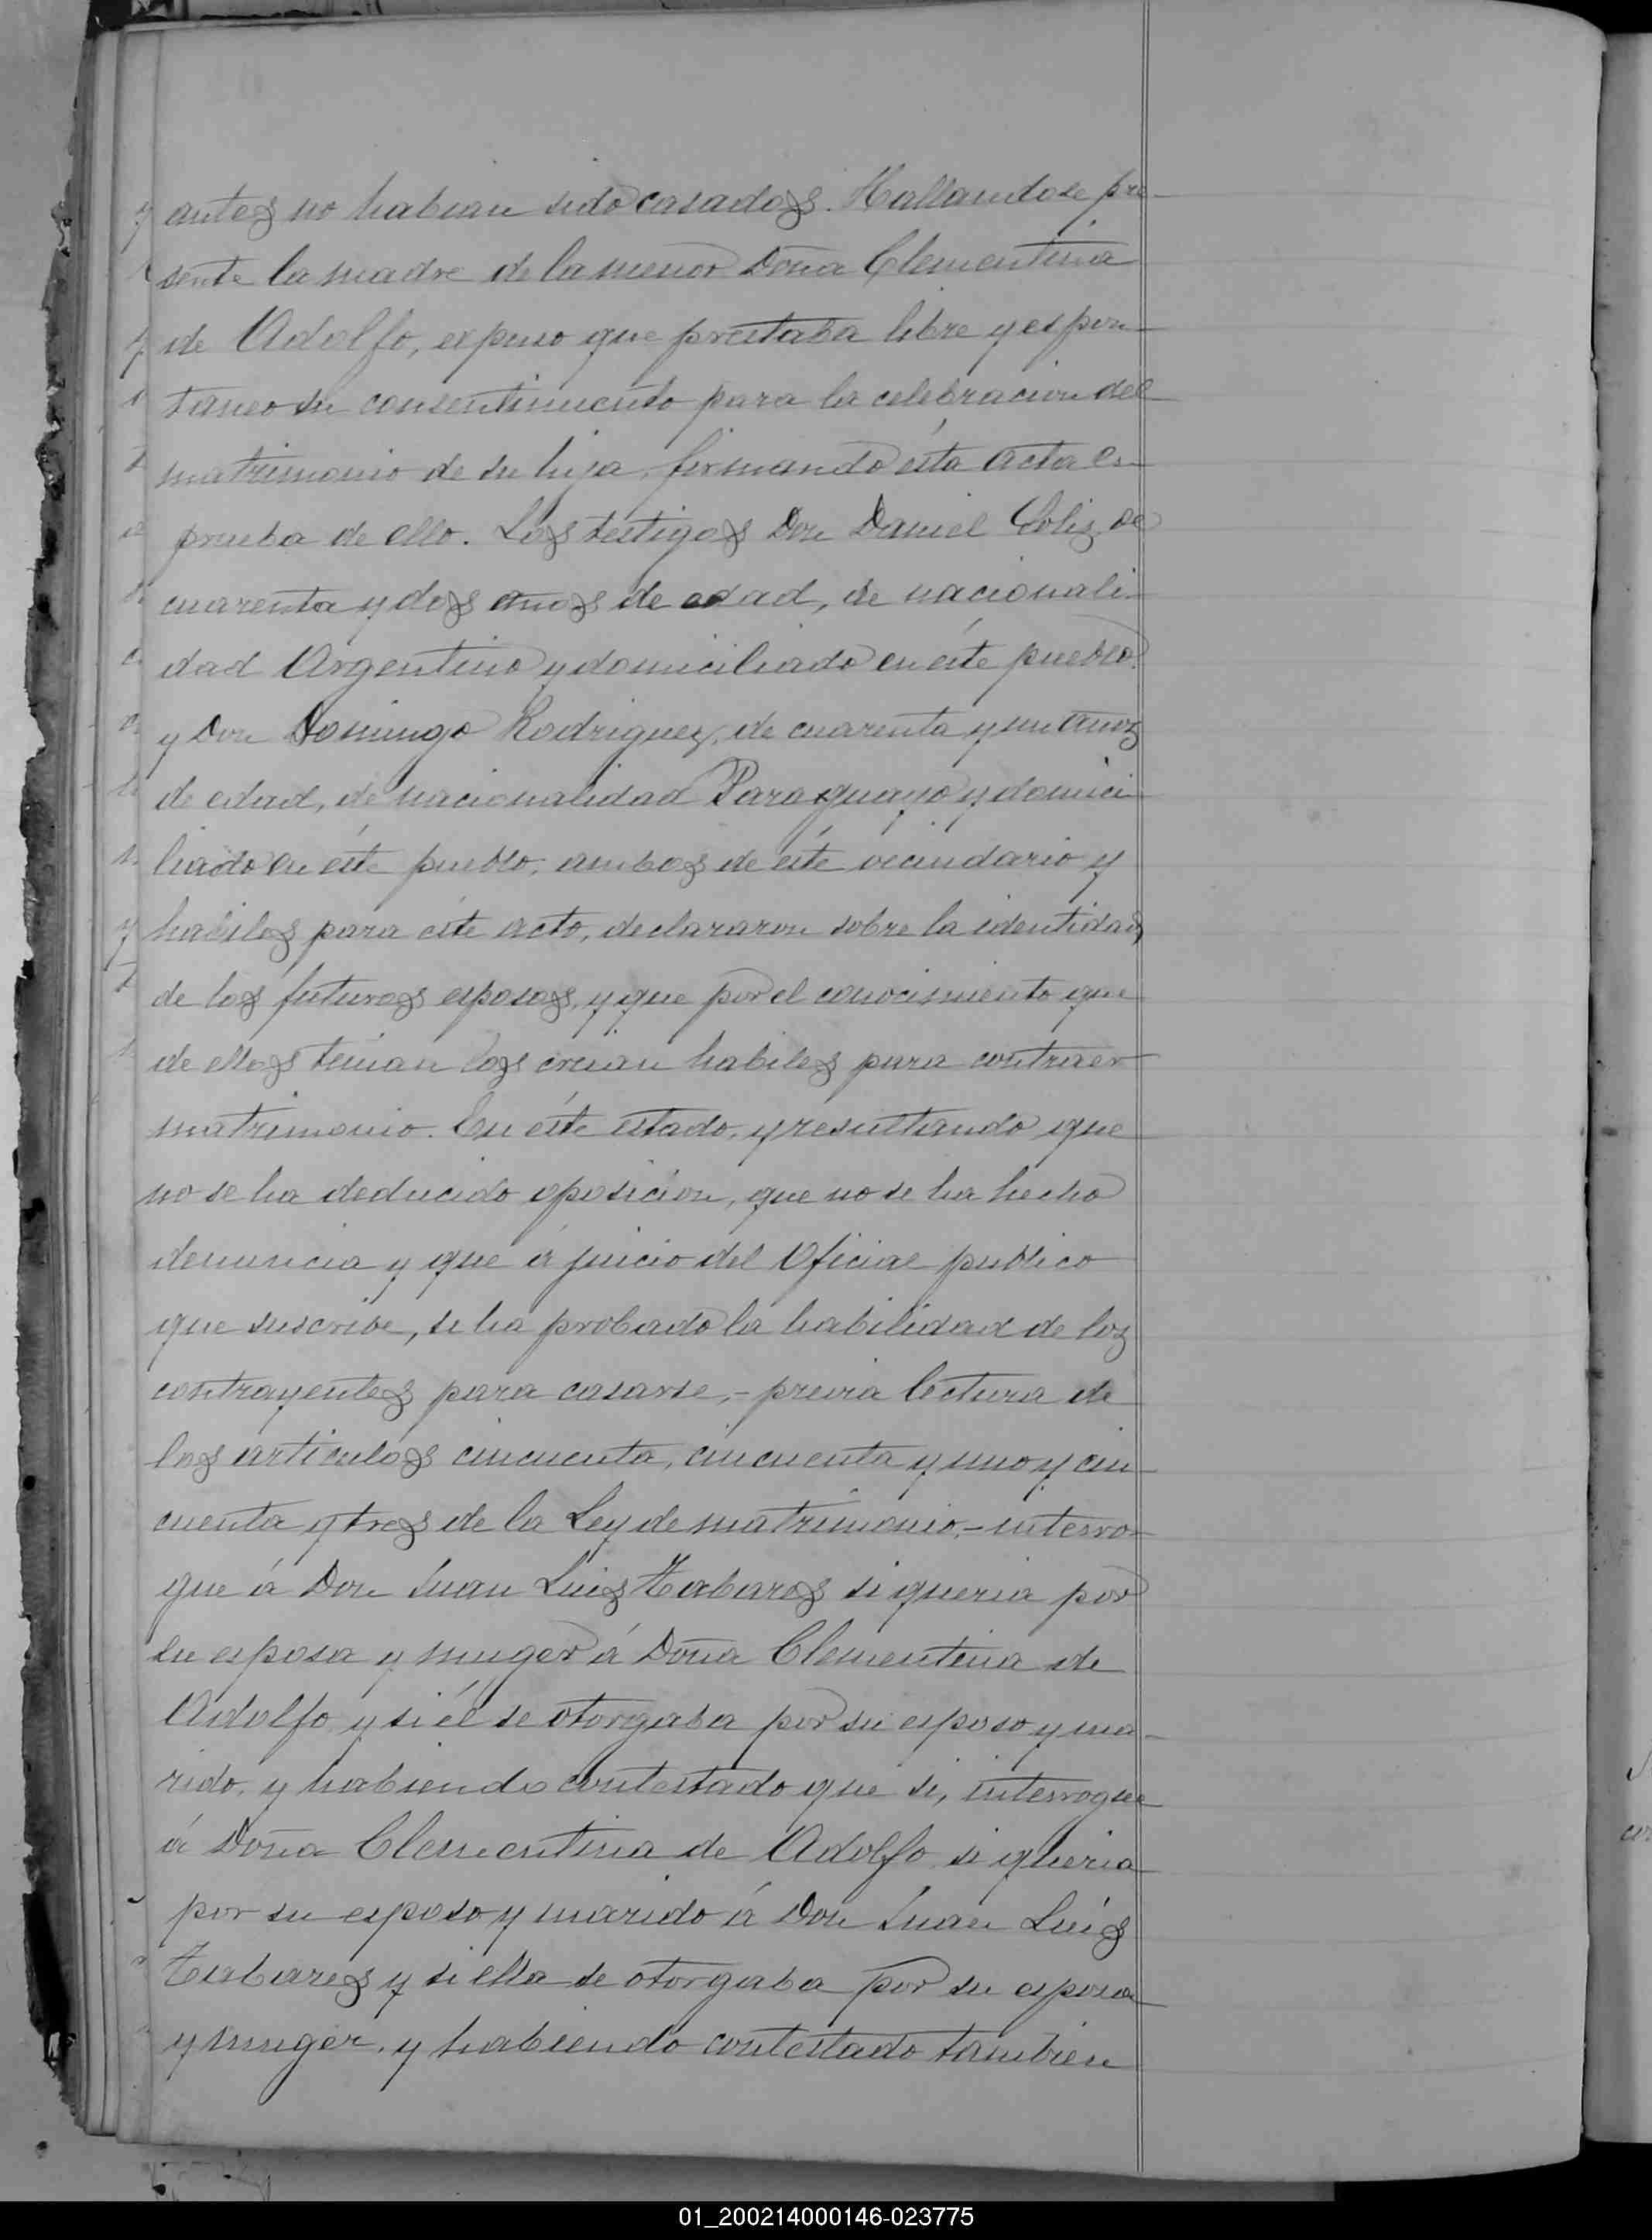 antes no habian sido casados. Hallandose pre-
sente la madre de la menor Doña Clementina
de Adolfo, espuso que prestaba libre y espon-
taneo su consentimiento para la celebracion del
matrimonio de su hija, firmando ésta acta en
prueba de ello. Los testigos Don Daniel Soliz, de
cuarenta y dos años de edad, de nacionali-
dad Argentino y domiciliado en éste pueblo,
y Don Domingo Rodriguez, de cuarenta y un años
de edad, de nacionalidad Paraguayo y domici-
liado en éste pueblo, ambos de éste vecindario y
habiles para éste acto, declararon sobre la identidad
de los futuros esposos, y que por el conocimiento que
de ellos tenian los creian habiles para contraer
matrimonio. En éste estado, y resultando que
no se ha deducido oposicion, que no se ha hecho
denuncia y que á juicio del Oficial publico
que suscribe, se ha probado la habilidad de los
contrayentes para casarse,- previa lectura de
los articulos cincuenta, cincuenta y uno y cin-
cuenta y tres de la Ley de matrimonio,- interro-
gue á Don Juan Luis Tabares si queria por
su esposa y muger á Doña Clementina de
Adolfo y si él se otorgaba por su esposo y ma-
rido, y habiendo contestado que si, interrogue
á Doña Clementina de Adolfo si queria
por su esposo y marido á Don Juan Luis
Tabares y si ella se otorgaba por su esposa
y muger, y habiendo contestado tambien
01_200214000146-023775